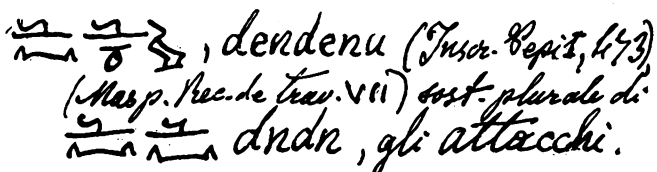 , dendenu (Inscr. Pepi I, 473)
(Masp. Rec. de trav. VII) sost. plurale di
dndn, gli attacchi.